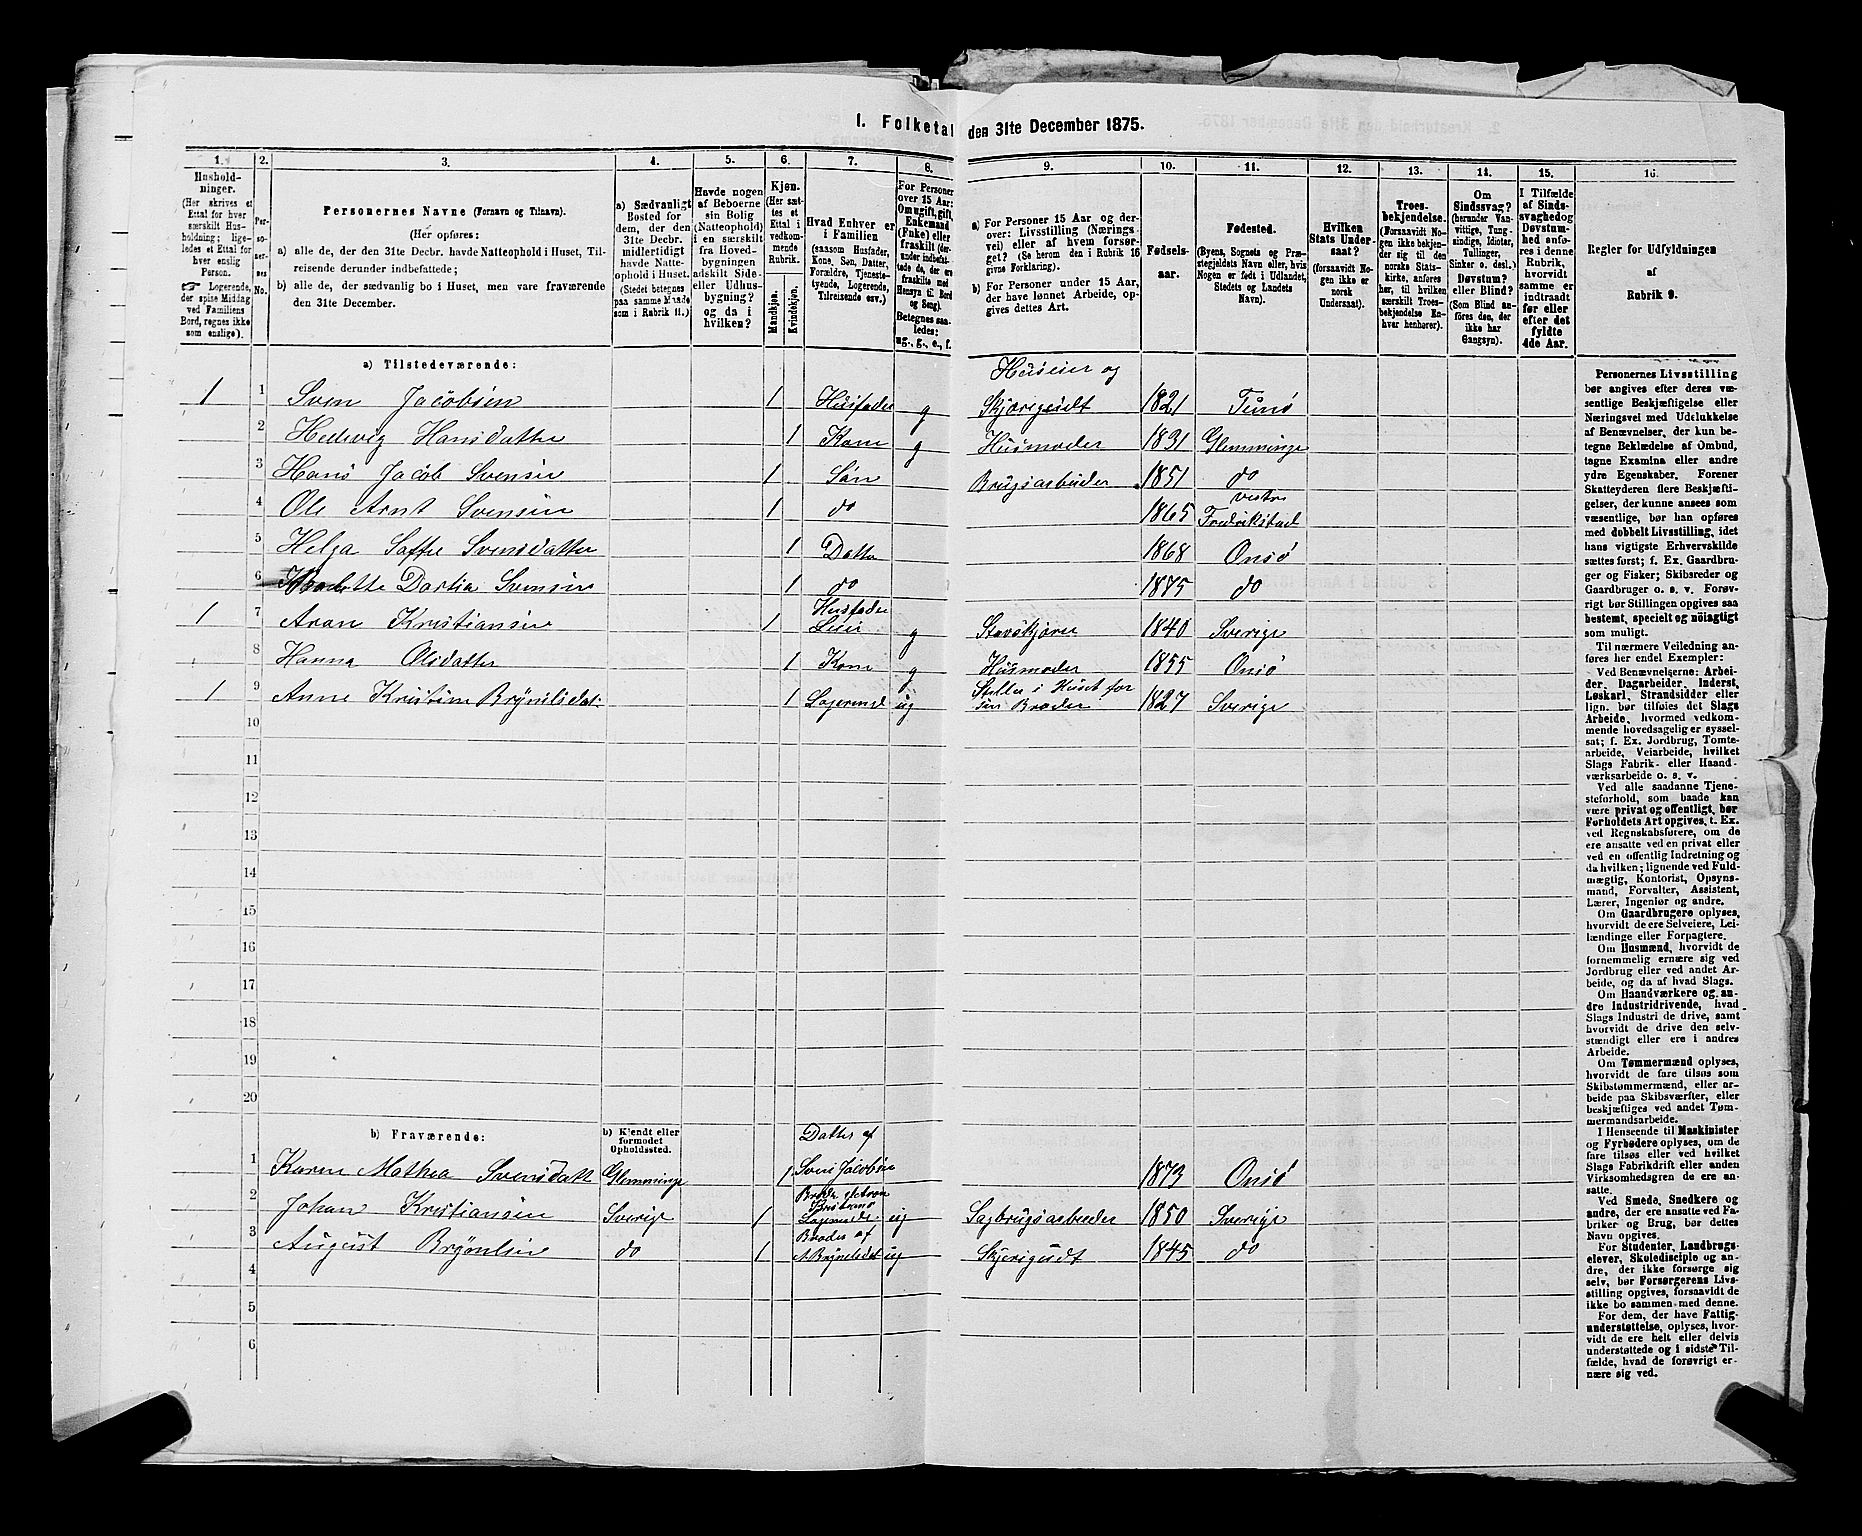 1. Folketal den 31te December 1875.
1. 2. 3. 4. 5. 6. 7. 8. 9. 10. 11. 12. 13. 14. 15. 16.
Hushold-
ninger.
(Her skrives et
Ettal for hver
særskilt Hus-
holdning; lige-
ledes et Ettal for
hver enslig
Person.
☞ Logerende,
der spise Middag
ved Familiens
Bord, regnes ikke
som enslige).
Per-
so-
ner-
nes
No.
Personernes Navne (Fornavn og Tilnavn).
(Her opføres:
a) alle de, der den 31te Decbr. havde Natteophold i Huset, Til-
reisende derunder indbefattede;
b) alle de, der sædvanlig bo i Huset, men vare fraværende
den 31te December.
a) Sædvanligt
Bosted for
dem, der den
31te Decbr.
midlertidigt
havde Natte-
ophold i Huset.
(Stedet betegnes
paa samme Maade
som i Rubrik 11.)
Havde nogen
af Beboerne
sin Bolig
(Natteophold)
i en særskilt
fra Hoved-
bygningen
adskilt Side-
eller Udhus-
bygning?
og da i
hvilken?
Kjøn.
(Her sæt-
tes et
Ettal i
vedkom-
mende
Rubrik.
Mandkjøn.
Kvindekjøn.
Hvad Enhver er
i Familien
(saasom Husfader,
Kone, Søn, Datter,
Forældre, Tjeneste-
tyende, Logerende,
Tilreisende osv.)
For Personer
over 15 Aar:
Om ugift, gift,
Enkemand
(Enke) eller
fraskilt (der-
under indbefat-
tede de, der ere
fraskilte med
Hensyn til Bord
og Seng).
Betegnes saa-
ledes:
ug., g., e., f.
a) For Personer 15 Aar og der-
over: Livsstilling (Nærings-
vei) eller af hvem forsør-
get? (Se herom den i Rubrik 16
givne Forklaring).
b) For Personer under 15 Aar,
der have lønnet Arbeide, op-
gives dettes Art.
Fødsels-
aar.
Fødested.
(Byens, Sognets og Præ-
stegjeldets Navn eller, hvis
Nogen er født i Udlandet,
Stedets og Landets
Navn).
Hvilken
Stats Under-
saat?
(forsaavidt No-
gen ikke er
norsk
Undersaat).
Troes-
bekjendelse.
(Forsaavidt No-
gen ikke bekjen-
der sig til den
norske Stats-
kirke, anføres
her, til hvilken
særskilt Troes-
bekjendelse En-
hver henhører).
Om
Sindssvag?
(herunder Van-
vittige, Tung-
sindige, Idioter,
Tullinger,
Sinker o. desl.)
Døvstum?
eller Blind?
(Som Blind an-
føres den, der
ikke har
Gangsyn).
I Tilfælde
af Sinds-
svaghed og
Døvstum-
hed anfø-
res i denne
Rubrik,
hvorvidt
samme er
indtraadt
før eller
efter det
fyldte
4de Aar.
Regler for Udfyldningen
af
Rubrik 9.
a) Tilstedeværende:
Huseier og
1 1 Sven Jacobsen 1 Husfader g Skjærgsudt 1821 Tunø
2 Hedevig Hansdatter 1 Kone g Husmoder 1831 Glemminge
3 Hans Jacob Svensen 1 Søn Brugsarbeider 1851 do
vestre
4 Ole Arnt Svensen 1 do 1865 Fredrikstad
5 Helga Soffie Svensdatter 1 Datter 1868 Onsø
6 Dortia Svensen 1 do 1875 do
Husfader
1 7 Aron Kristiansen 1 Leier g 1840 Sverige
8 Hanna Olsdatter 1 Kone g Husmoder 1855 Onsø
Steller i Huset for
1 9 Anne Kristine Brynilsdat: 1 Logerend ug sin Broder 1827 Sverige
10
11
12
13
14
15
16
17
18
19
20
b) Fraværende:
b) Kjendt eller
formodet
Opholdssted.
Datter af
1 Karen Mathea Svensdatt Glemminge 1 Sven Jacobsen 1873 Onsø
Broder af Aron
Kristians
2 Johan Kristiansen Sverige 1 Logerende ug Sagbrugsarbeider 1850 Sverige
Broder af
3 August Brynilsen do 1 A Brynilsdat ug Skjærgsudt 1845 do
4
5
6
Personernes Livsstilling
bør angives efter deres væ-
sentlige Beskjæftigelse eller
Næringsvei med Udelukkelse
af Benævnelser, der kun be-
tegne Beklædelse af Ombud,
tagne Examina eller andre
ydre Egenskaber. Forener
Skatteyderen flere Beskjæfti-
gelser, der kunne ansees som
væsentlige, bør han opføres
med dobbelt Livsstilling, idet
hans vigtigste Erhvervskilde
sættes først; f. Ex. Gaardbru-
ger og Fisker; Skibsreder og
Gaardbruger o. s. v. Forøv-
rigt bør Stillingen opgives saa
bestemt, specielt og nöiagtigt
som muligt.
Til nærmere Veiledning an-
føres her endel Exempler:
Ved Benævnelserne: Arbei-
der, Dagarbeider, Inderst,
Løskarl, Strandsidder eller
lign. bør tilføies det Slags
Arbeide, hvormed vedkom-
mende hovedsagelig er syssel-
sat; f. Ex. Jordbrug, Tomte-
arbeide, Veiarbeide, hvilket
Slags Fabrik- eller Haand-
værksarbeide o. s. v.
Ved alle saadanne Tjene-
steforhold, som baade kan
være privat og offentligt, bør
Forholdets Art opgives, t. Ex.
ved Regnskabsførere, om de
ere ansatte ved en privat eller
ved en offentlig Indretning og
da hvilken; lignende ved Fuld-
mægtig, Kontorist, Opsyns-
mand, Forvalter, Assistent,
Lærer, Ingeniør og andre.
Om Gaardbrugere oplyses,
hvorvidt de ere Selveiere, Lei-
lændinge eller Forpagtere.
Om Husmænd, hvorvidt de
fornemmelig ernære sig ved
Jordbrug eller ved andet Ar-
beide, og da af hvad Slags.
Om Haandværkere og an-
dre Industridrivende, hvad
Slags Industri de drive, samt
hvorvidt de drive den selv-
stændigt eller ere i andres
Arbeide.
Om Tømmermænd oplyses,
hvorvidt de fare tilsøs som
Skibstømmermænd, eller ar-
beide paa Skibsværfter, eller
beskjæftiges ved andet Tøm-
mermandsarbeide.
I Henseende til Maskinister
og Fyrbødere oplyses, om de
fare tilsøs eller ved hvilket
Slags Fabrikdrift eller anden
Virksomhedsgren de ere an-
satte.
Ved Smede, Snedkere og
andre, der ere ansatte ved Fa-
briker og Brug, bør dettes
Navn opgives.
For Studenter, Landbrugs-
elever, Skoledisciple og an-
dre, der ikke forsørge sig
selv, bør Forsørgerens Livs-
stilling opgives, forsaavidt de
ikke bo sammen med denne.
For dem, der have Fattig-
understøttelse, oplyses, hvor-
vidt de ere helt eller delvis
understøttede og i sidste Til-
fælde, hvad de forøvrigt er-
nære sig ved.